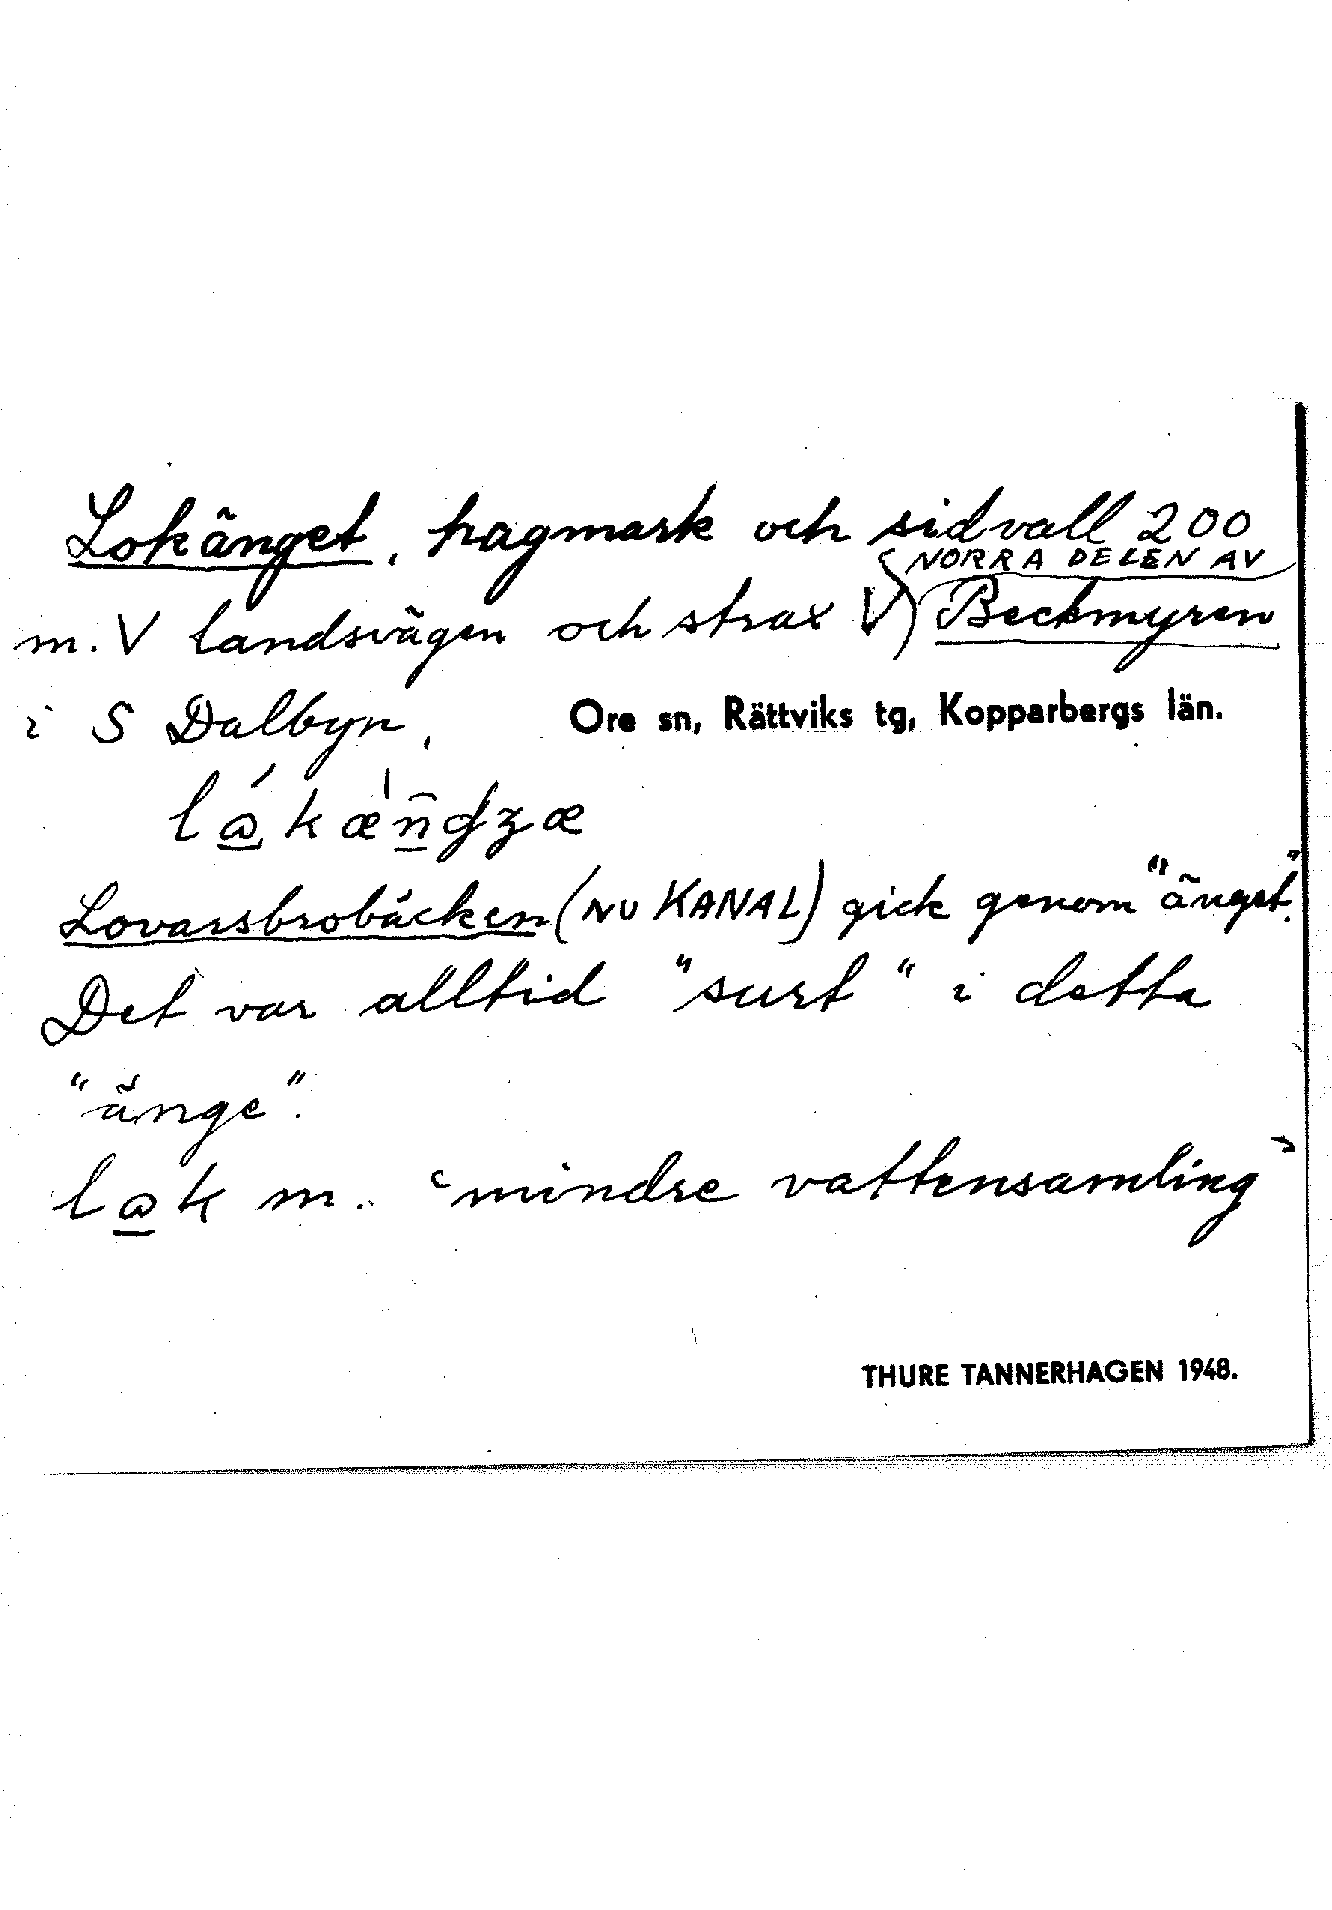 Lokänget, hagmark och sidvall 200
NORRA DELEN AV
m. V landsvägen och strax V Beckmyren
i S Dalbyn, Ore sn, Rättviks tg, Kopparbergs län.
Lovarsbrobäcken (NU KANAL) gick genom "änget".
Det var alltid "surt" i detta
"änge".
lak m. "mindre vattensamling"
THURE TANNERHAGEN 1948.